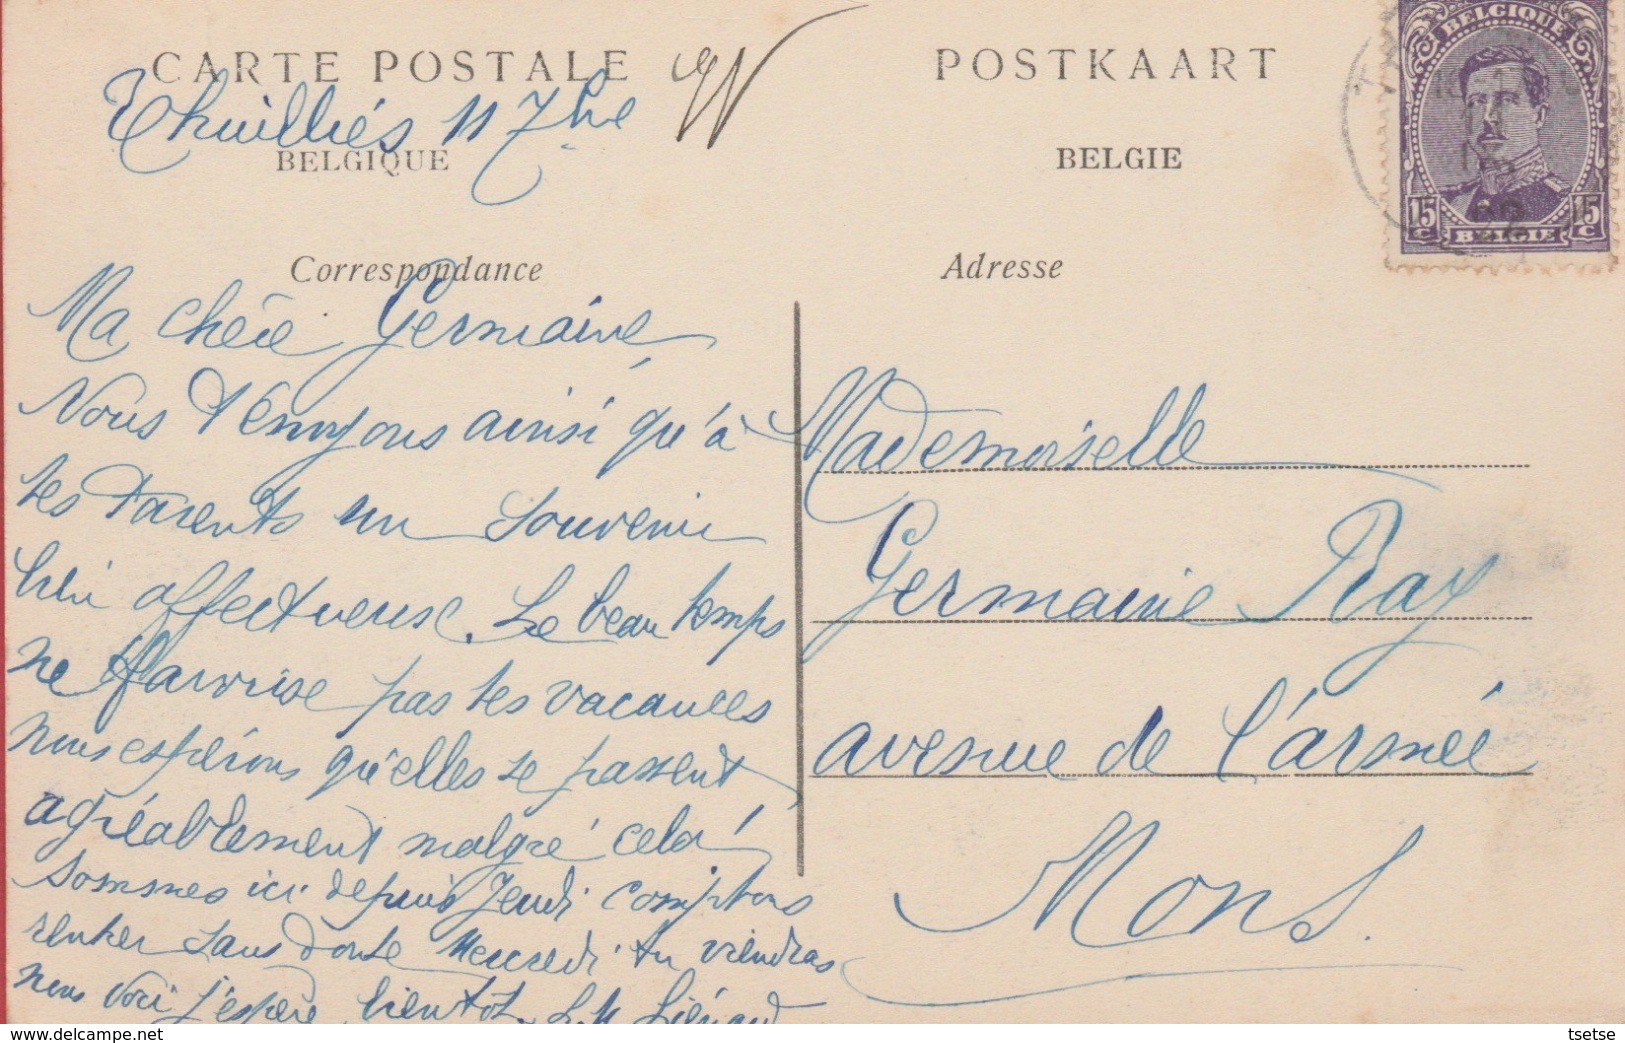 CARTE POSTALE
POSTKAART
Thuilliés 11 7bre
BELGIQUE
BELGIE
Correspondance
Adresse
Ma chère Germaine
Nous t'envoyons ainsi qu'à
tes Parents un souvenir
bien affectueux. Le beau temps
ne favorise pas tes vacances
nous espérons qu'elles se passent
agréablement malgré cela!
Sommes ici depuis Jeudi comptons
rentrer sans doute Mercredi tu viendras
nous voir j'espère bientôt.
Mademoiselle
Germaine Ray
avenue de l'armée
Mons.
BELGIQUE
15 C
15 C
BELGIE
11
22
tsetse